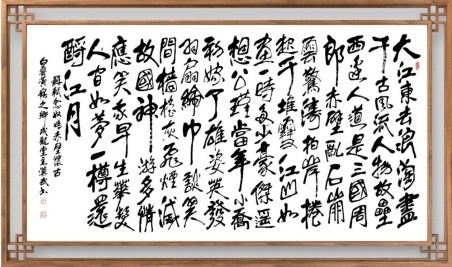 大江東去浪淘盡
千古風流人物故壘
西邊人道是三國周
郎赤壁亂石崩
雲驚濤拍岸捲
起千堆雪江山如
畫一時多少豪傑遥
想公瑾當年小喬
初嫁了雄姿英發
羽扇綸巾談笑
間檣櫓灰飛煙滅
故國神游多情
應笑我早生華髮
人間如夢一樽還
酹江月
蘇軾念奴嬌赤壁懷古
之鄉龍堂主漢武書